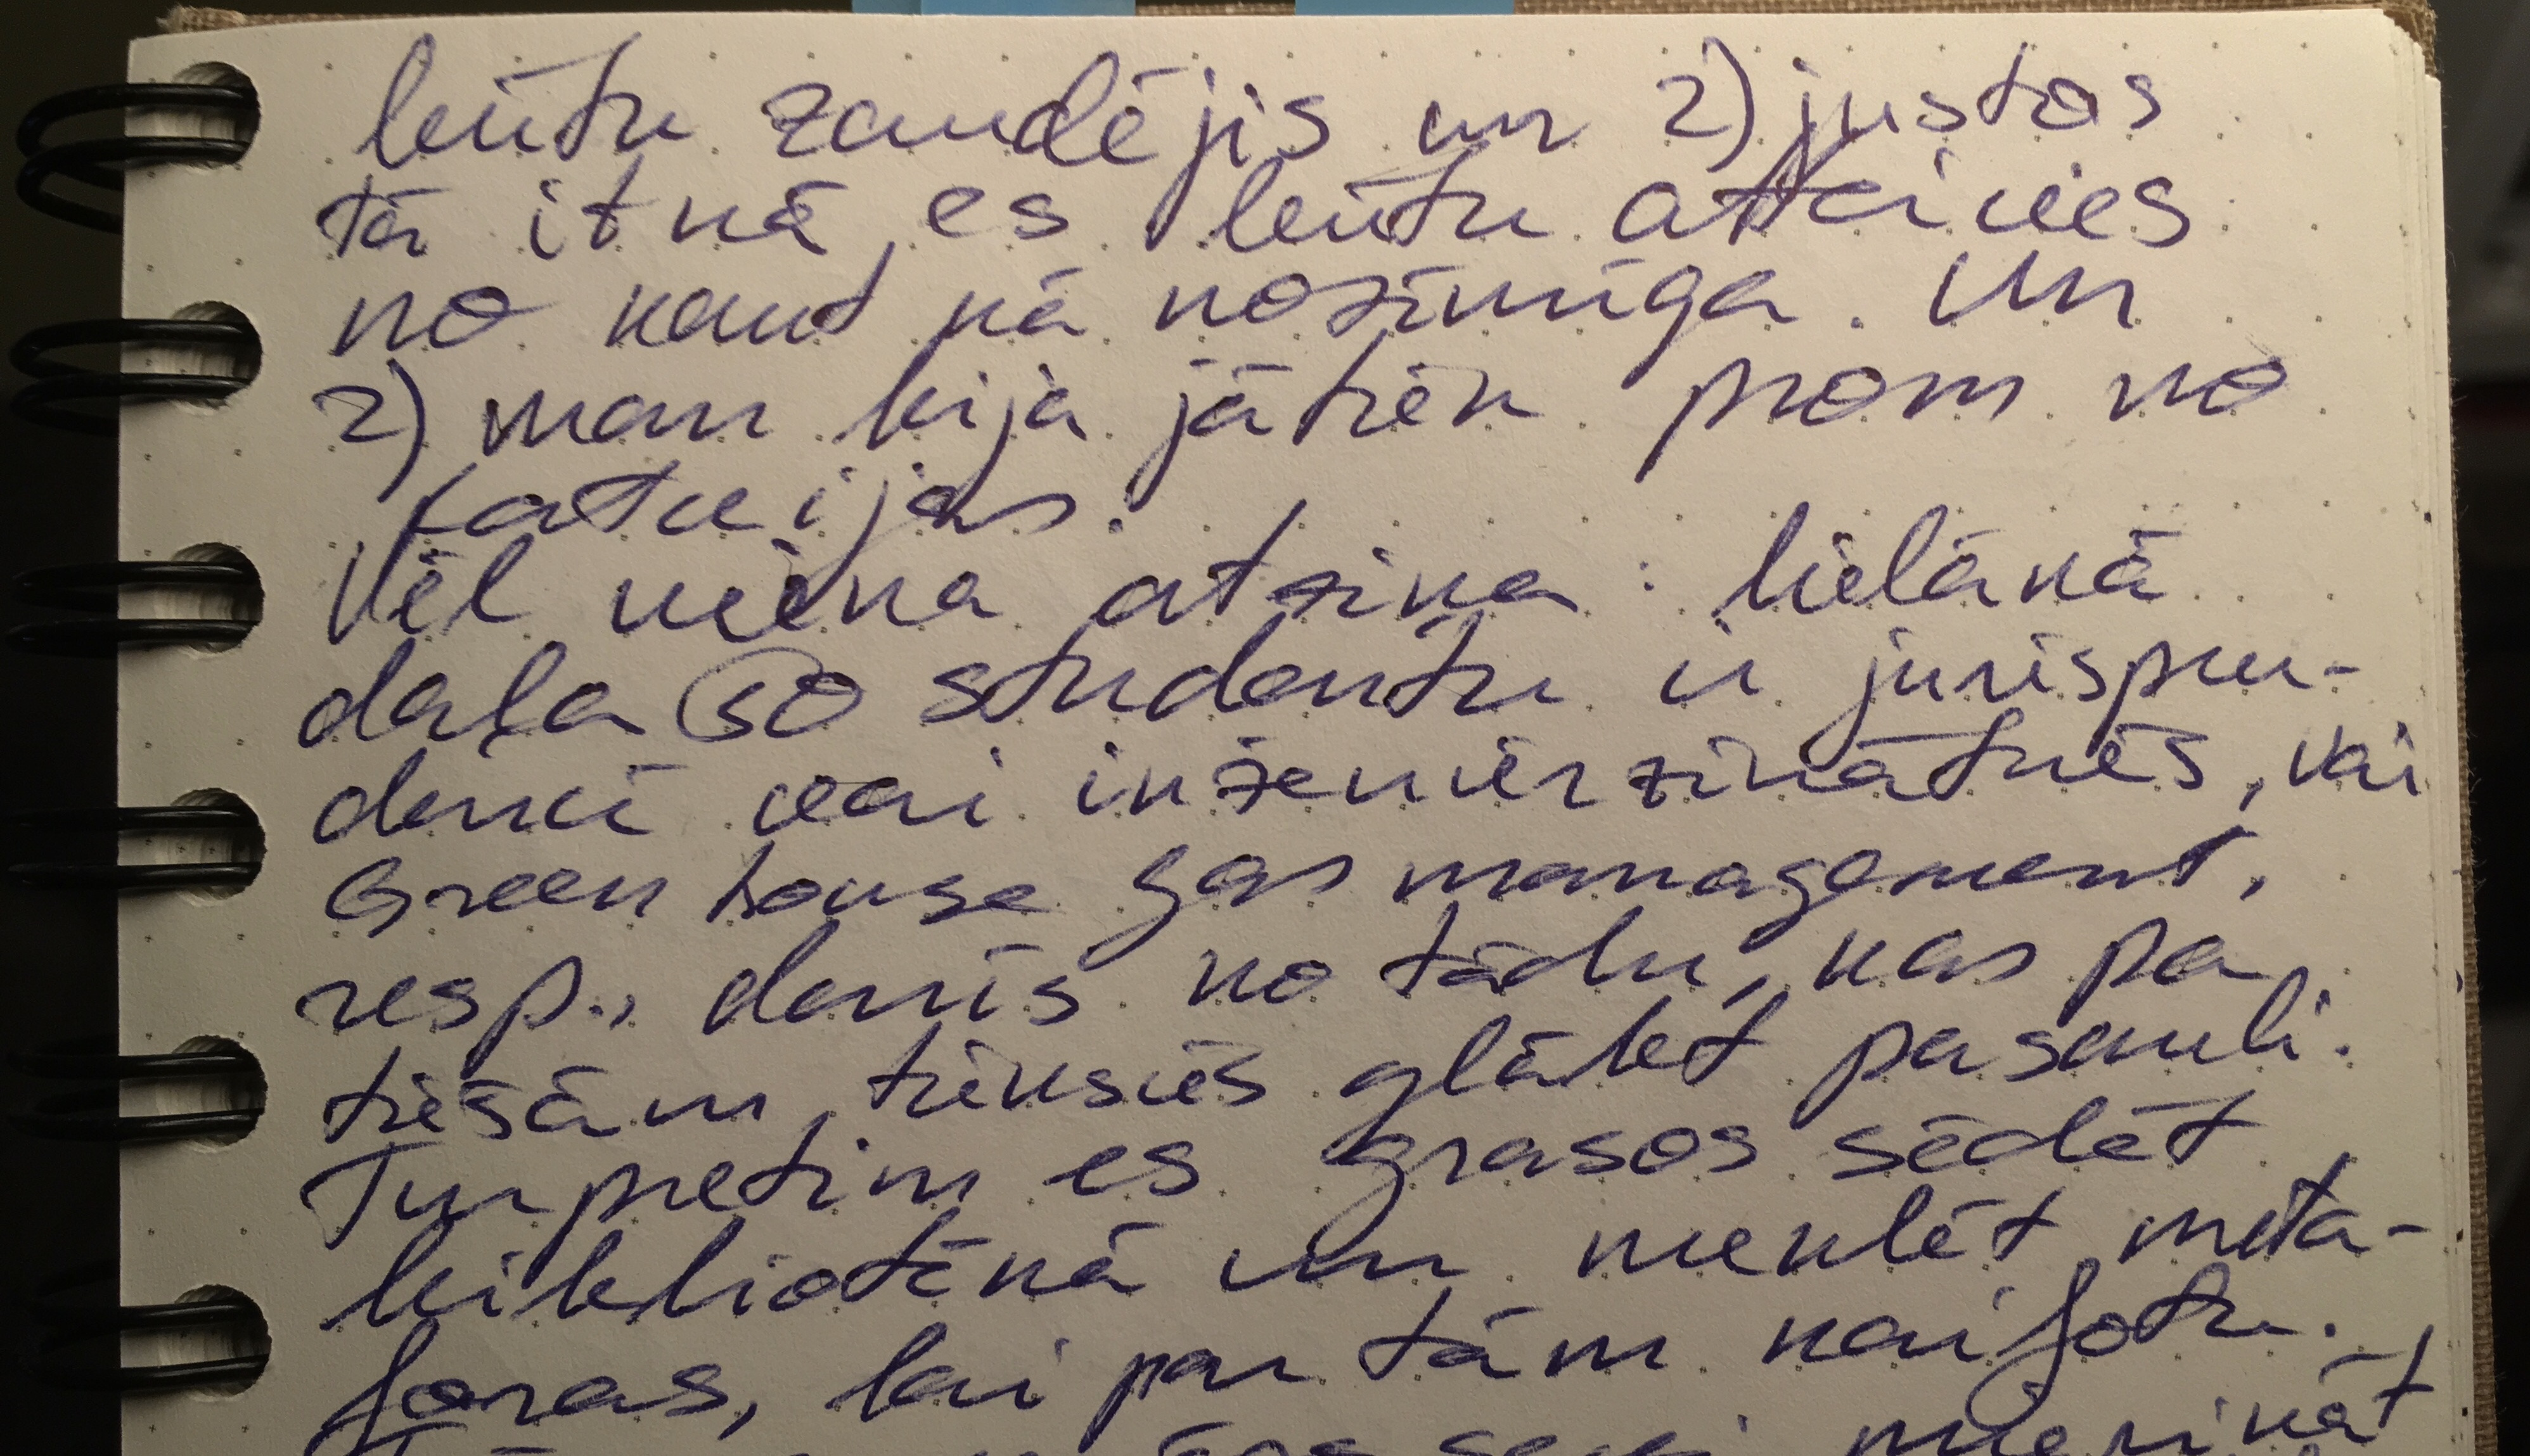 būtu zaudējis un 2) justos
tā it kā, es būtu atteicies
no kaut kā nozīmīga. Un
2) man bija jātiek prom no
Latvijas.
Vēl viena atziņa: lielākā
daļa SO studentu ir jurispru-
dencē vai inženierzinātnēs, vai
Green house gas management,
resp., daudz no tādu, kas pa
tiešām tieksies glābt pasauli.
Turpretim es grasos sēdēt
bibliotēkā un meklēt meta-
foras, lai par tām kaifotu.